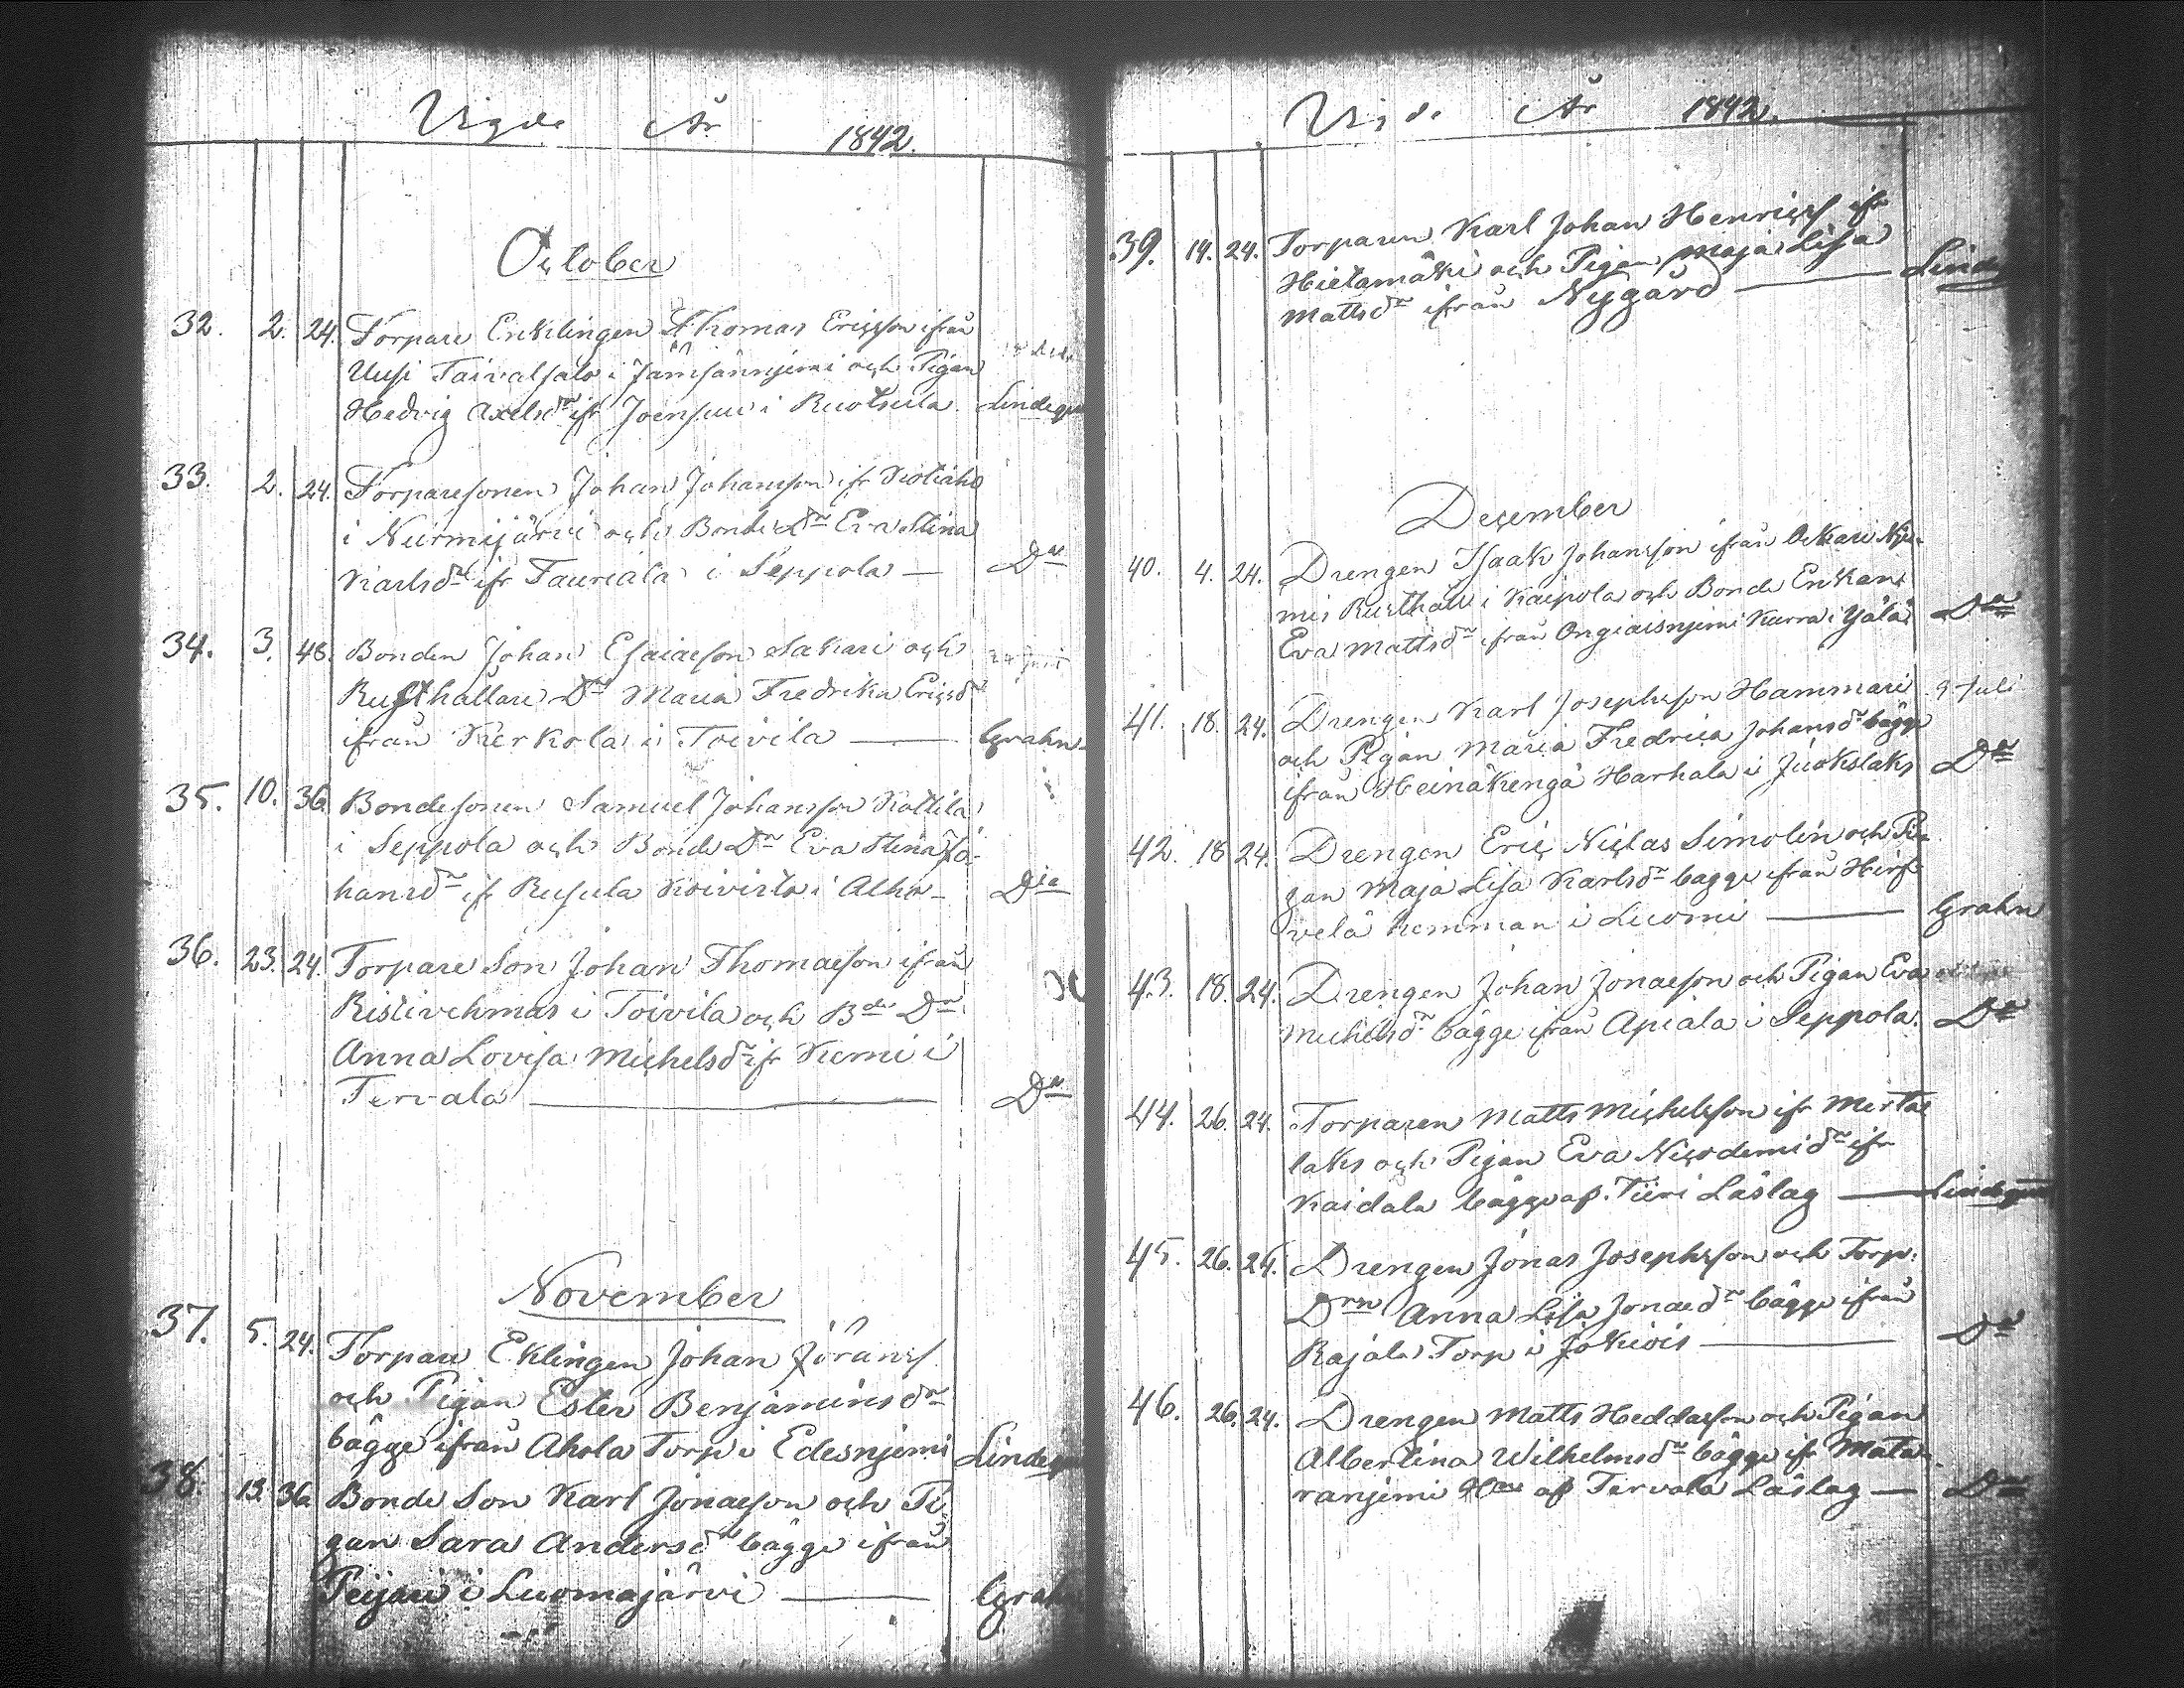 Vigde År 1842.
October
32. 2. 24. Torpare Enklingen Thomas Ericsson ifrån
Uusi Taivalsalo i Jämsänniemi och Pigan
Hedvig Axelsdr ifr Joensuu i Ruotsula. Lindeqv
33. 2. 24. Torparesonen Johan Johansson ifr Kotiaho
i Nurmijärvi och Bonde Dr Eva Stina
Karlsdr ifr Tauriala i Seppola — Do
34. 3. 48. Bonden Johan Esaiasson Sakari och
Rusthållare Dr Maria Fredrika Ericsdr
ifrån Kerkola i Toivila — Grahn
35. 10. 36. Bondesonen Samuel Johansson Kottila
i Seppola och Bonde Dr Eva Stina Jo-
hansdr ifr Rusula Koivisto i Alho — Do
36. 23. 24. Torpare Son Johan Thomasson ifrån
Ristivehmas i Toivila och Bde Dr
Anna Lovisa Michelsdr ifr Kemi i
Tervala — Do
November
37. 5. 24. Torpare Eklingen Johan Jöranss
och Pigan Ester Benjaminsdr
bägge ifrån Ahola Torp i Edesnjemi Lindeqv
38. 13. 36. Bonde Son Karl Jonasson och Pi-
gan Sara Andersdr bägge ifrån
Peijari i Luomajärvi — Grahn
Vigde År 1842.
39. 14. 24. Torparen Karl Johan Henricss ifr
Hietamäki och Pigan Maja Lisa
Mattsdr ifrån Nygård — Lind
December
40. 4. 24. Drengen Isaak Johansson ifrån
Rusthåll i Kaipola och Bonde Enkan
Eva Mattsdr ifrån Karra i Yälä Do
41. 18. 24. Drengen Karl Josephsson Hammari 9 Juli
och Pigan Maria Fredrica Johansdr bägge
ifrån Heinäkengä Harhala i Juokslaks Do
42. 18. 24. Drengen Eric Niclas Simolin och Pi-
gan Maja Lisa Karlsdr bägge ifrån Hirs-
velä hemman i Luomi — Grahn
43. 18. 24. Drengen Johan Jonasson och Pigan Eva
Michelsdr bägge ifrån Apiala i Seppola. Do
44. 26. 24. Torparen Matts Michelsson ifr Merta
laks och Pigan Eva Nicodemidr ifr
Kaidala bägge af Tiiri Läslag — Lindeqv
45. 26. 24. Drengen Jonas Josephsson och Torp.
Drn Anna Lisa Jonaedr bägge ifrån
Rajala Torp i Jokiois — Do
46. 26. 24. Drengen Matts Heddasson och Pigan
Albertina Wilhelmsdr bägge ifr Mata-
ranjemi af Tervala Läslag — Do